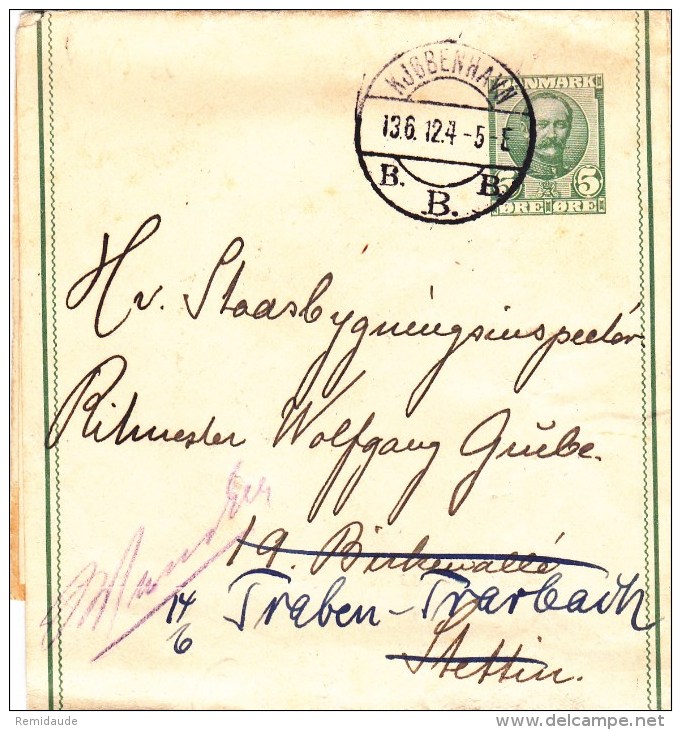 KJØBENHAVN
13.6.12.4-5-E
B. B. B.
DANMARK
5 5
ØRE ØRE
Hv. Staasbygningsinspectör
Ritmester Wolfgang Grübe.
19. Birkenallé
14/6 Traben-Trarbach
Stettin.
Remidaude
www.delcampe.net